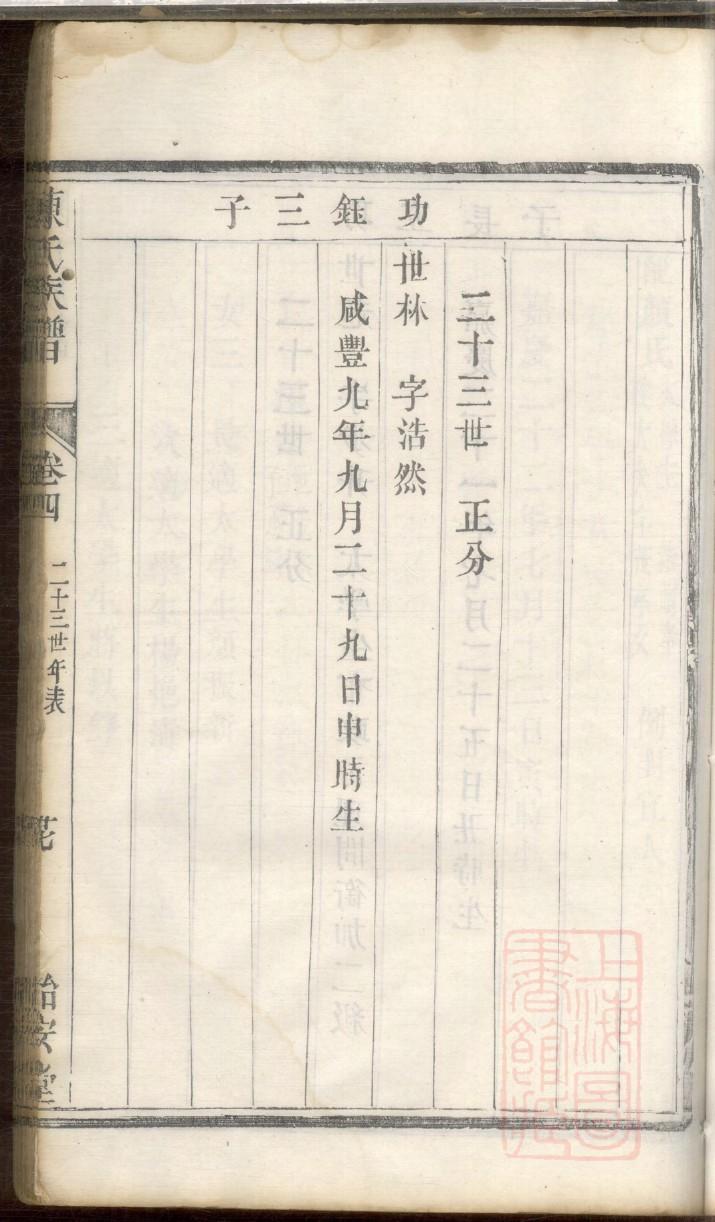 二十三世 正分
功鈺三子
世林 字浩然
咸豐九年九月二十九日申時生
陳氏族譜 卷四 二十三世年表 花 怡安堂
上海圖書館藏